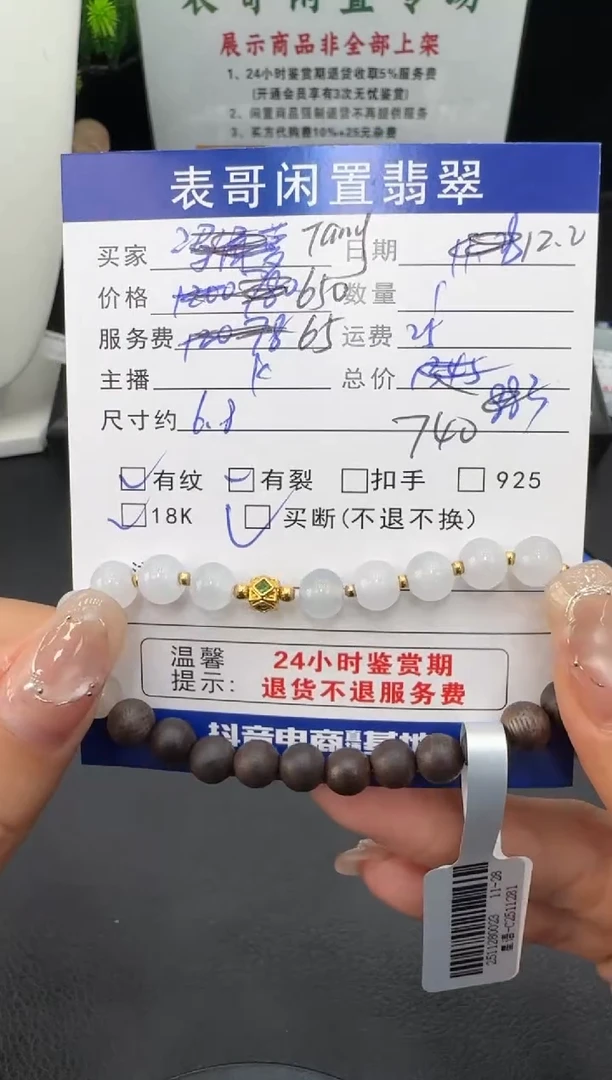 表哥闲置专场
展示商品非全部上架
1、24小时鉴赏期退货收取5%服务费
(开通会员享有3次无忧鉴赏)
2、闲置商品强制退货不再提供服务
3、买方代购费10%+25元杂费
表哥闲置翡翠
买家 Tany 日期 12.2
价格 650 数量 1
服务费 65 运费 25
主播 K 总价
尺寸约 6.8 740
有纹 有裂 扣手 925
18K 买断(不退不换)
温馨提示: 24小时鉴赏期
退货不退服务费
抖音电商 基地
2511280023 11-28